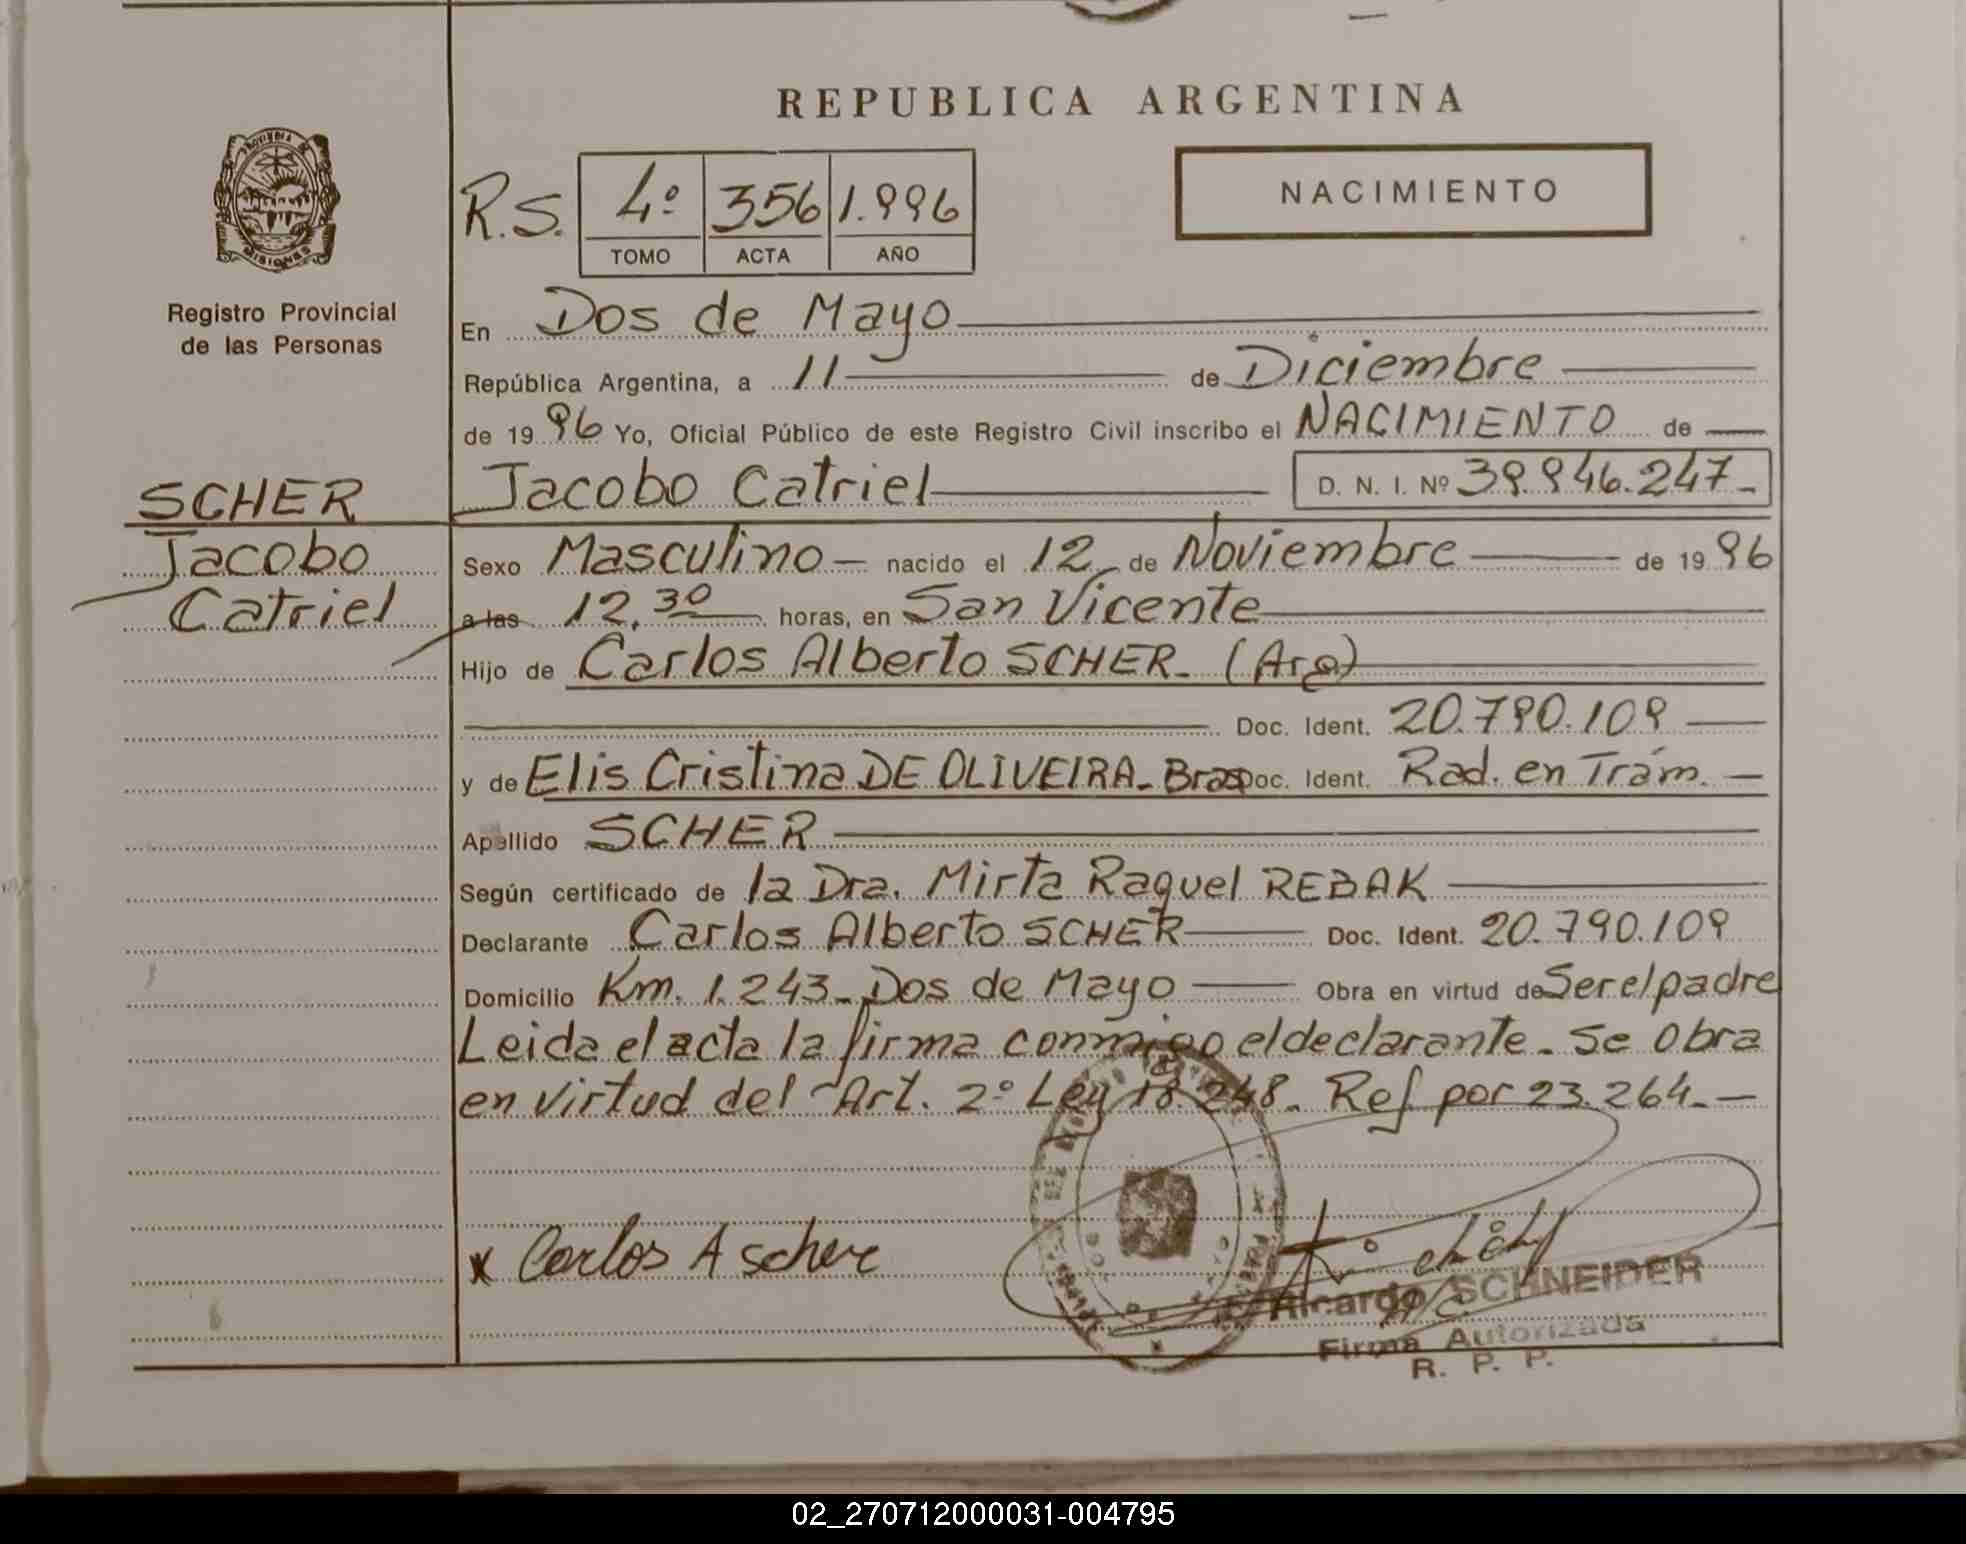 REPUBLICA ARGENTINA
PROVINCIA DE
MISIONES
Registro Provincial
de las Personas
R.S. 4º 356 1.996
TOMO ACTA AÑO
NACIMIENTO
En Dos de Mayo
República Argentina, a 11 de Diciembre
de 19 96 Yo, Oficial Público de este Registro Civil inscribo el NACIMIENTO de
SCHER
Jacobo
Catriel
Jacobo Catriel D. N. I. Nº 39.946.247-
Sexo Masculino — nacido el 12 de Noviembre de 19 96
a las 12.30 horas, en San Vicente
Hijo de Carlos Alberto SCHER_ (Arg)
Doc. Ident. 20.790.109
y de Elis Cristina DE OLIVEIRA_ Bras Doc. Ident. Rad. en Trám. —
Apellido SCHER
Según certificado de la Dra. Mirta Raquel REBAK
Declarante Carlos Alberto SCHER Doc. Ident. 20.790.109
Domicilio Km. 1.243_ Dos de Mayo Obra en virtud de Ser el padre
Leida el acta la firma conmigo el declarante_ Se obra
en virtud del Art. 2º Ley 18.248_ Ref por 23.264_ —
x Carlos A scher
Ricardo SCHNEIDER
Firma Autorizada
R. P. P.
02_270712000031-004795